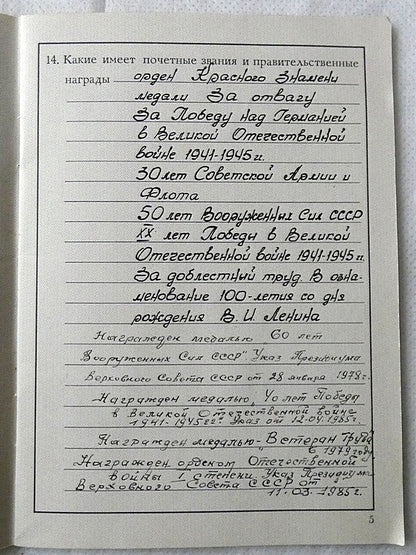 14. Какие имеет почетные звания и правительственные
награды орден Красного Знамени
медали За отвагу
За Победу над Германией
в Великой Отечественной
войне 1941-1945 гг.
30 лет Советской Армии и
Флота
50 лет Вооруженных Сил СССР
XX лет Победы в Великой
Отечественной войне 1941-1945 гг.
За доблестный труд. В озна-
менование 100-летия со дня
рождения В. И. Ленина
Награжден медалью 60 лет
Вооруженных Сил СССР" Указ Президиума
Верховного Совета СССР от 28 января 1978 г.
Награжден медалью, 40 лет Победы
в Великой Отечественной войне
1941-1945 гг. Указ от 12.04.1985 г.
Награжден медалью-"Ветеран Труда"
в 1979 году
Награжден орденом Отечественной
войны I степени. Указ Президиума
Верховного Совета СССР от
11.03.1985 г.
5